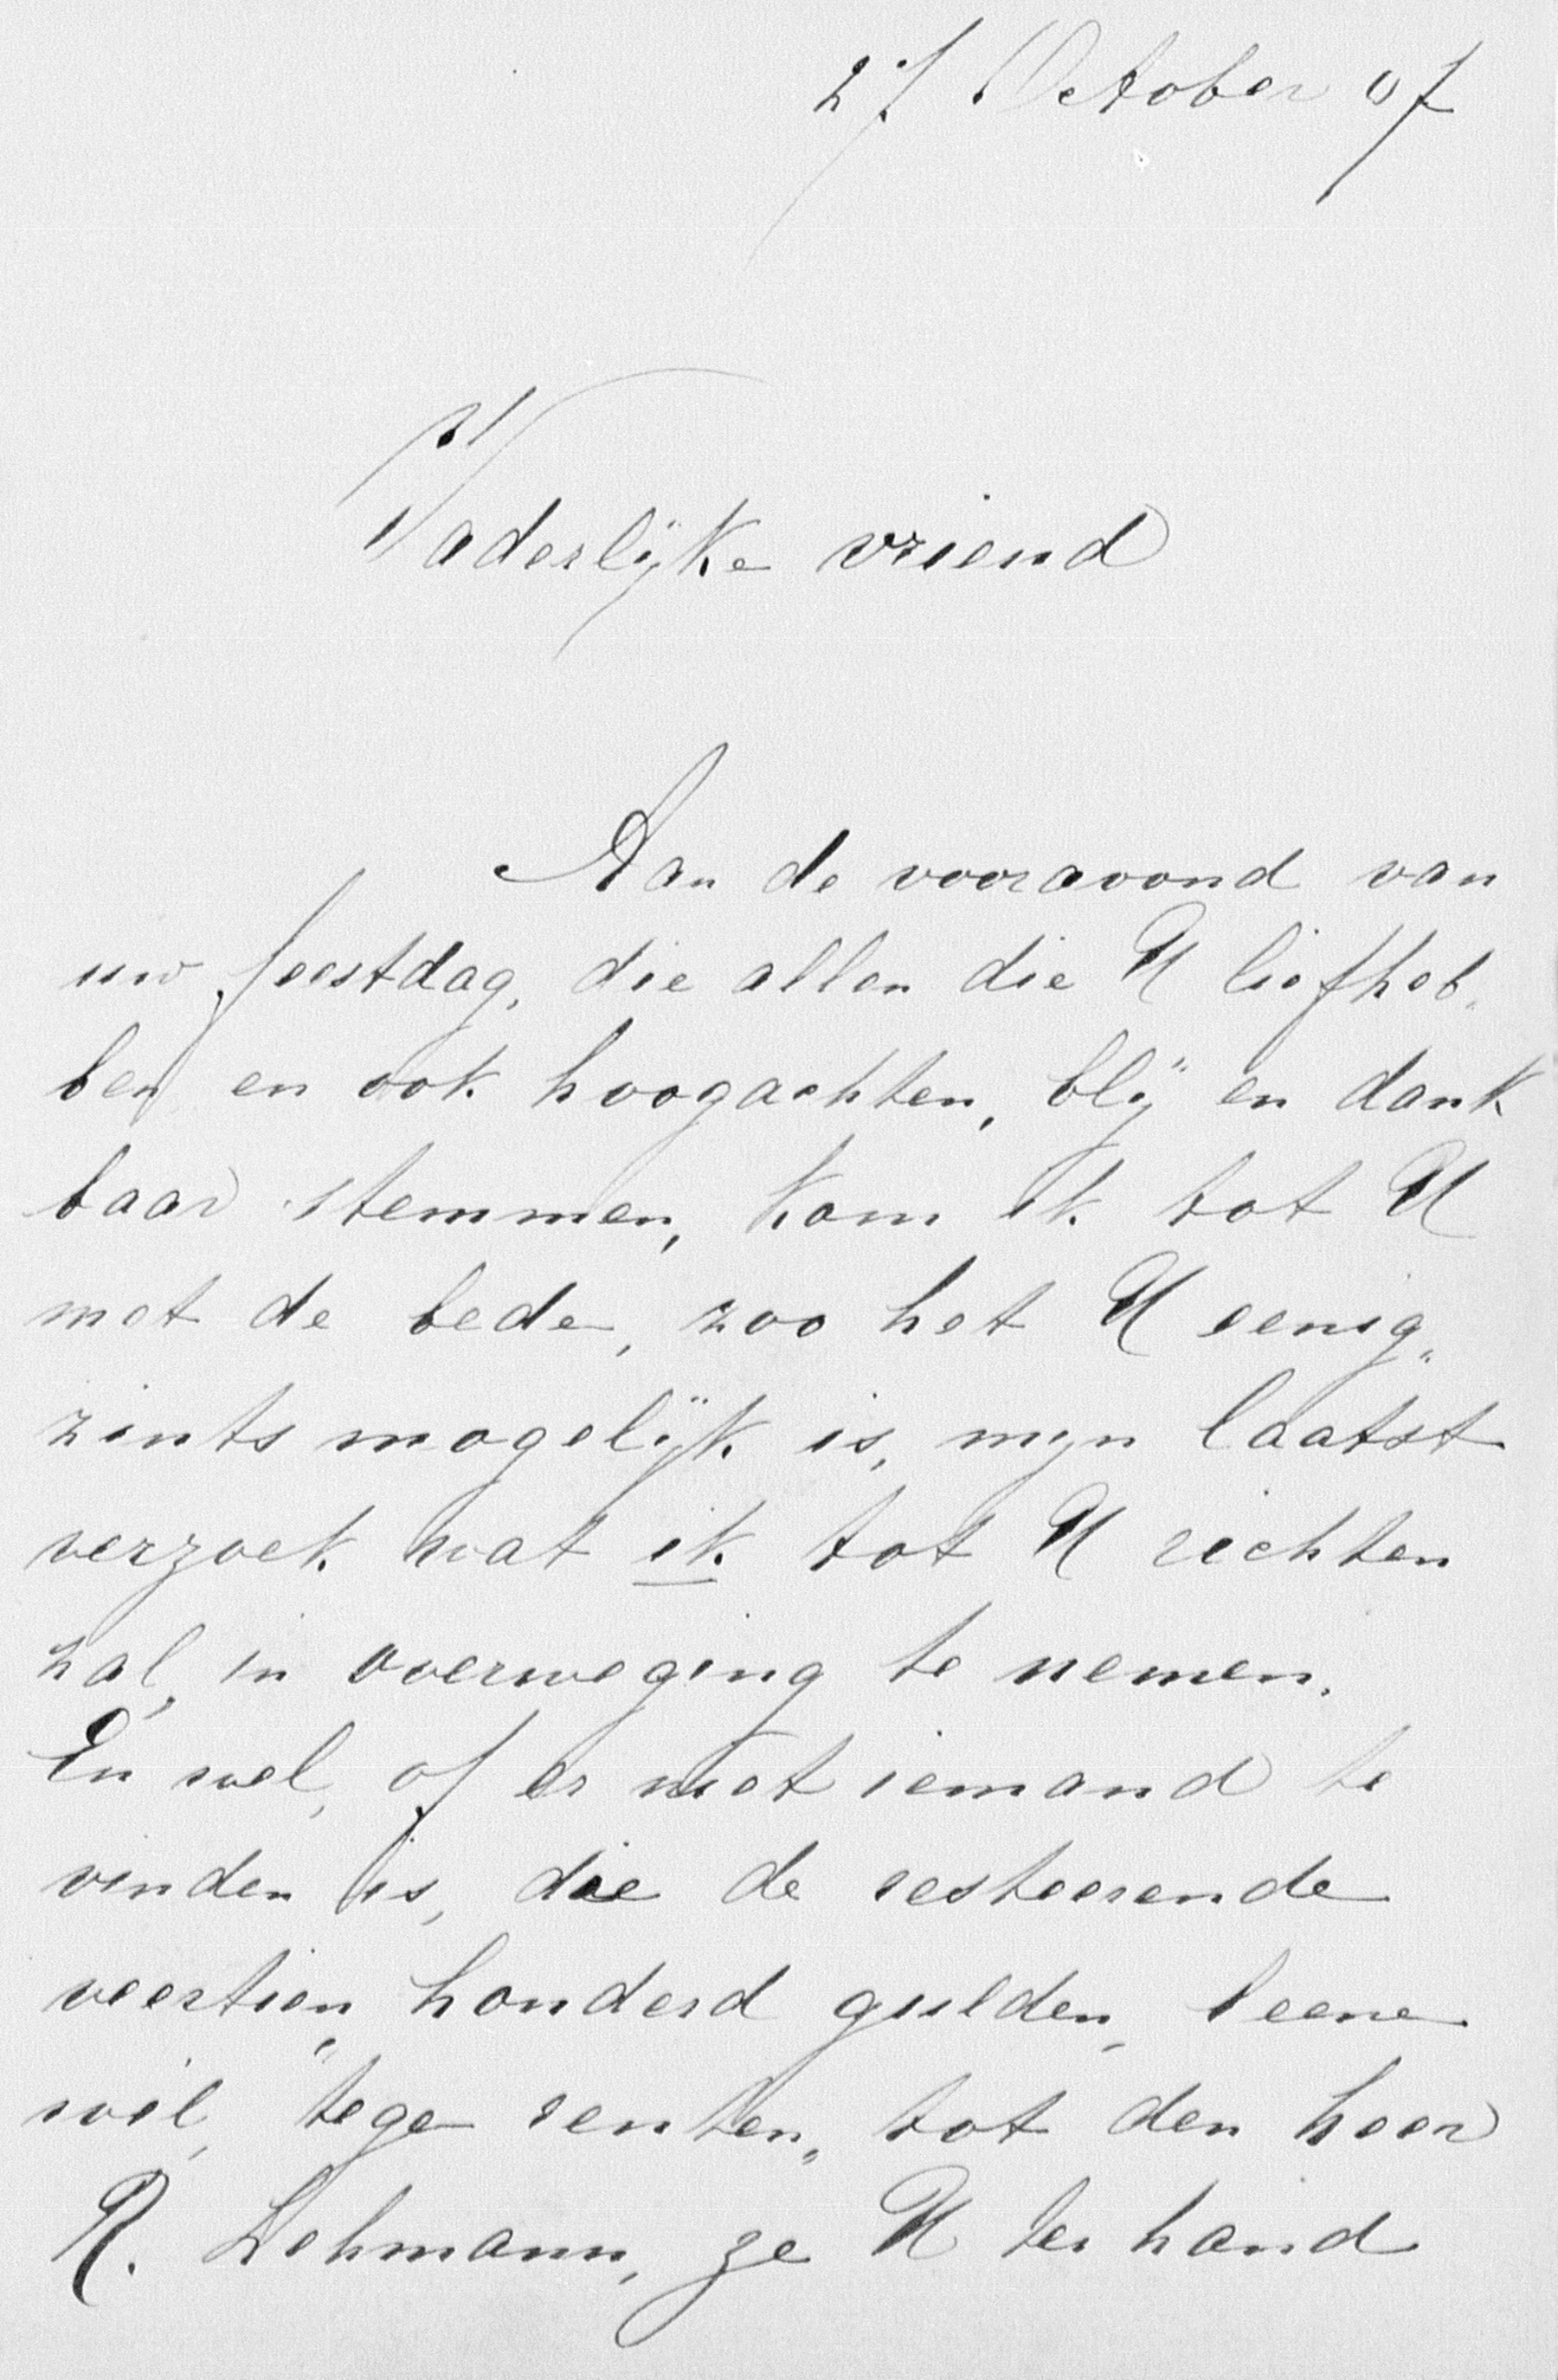 27 October 07
Vaderlijke vriend
Aan de vooravond van
uw feestdag, die allen die U liefheb„
ben en ook hoogachten, blij en dank
baar stemmen, kom ik tot U
met de bede, zoo het U eenig„
zints mogelijk is, mijn laatst
verzoek wat ik tot U richten
zal, in overweging te nemen.
En wel, of er niet iemand te
vinden is, die de resteerende
veertien honderd gulden, leene
wil, "tege renten„ tot den heer
R. Lehmann, ze U ter hand